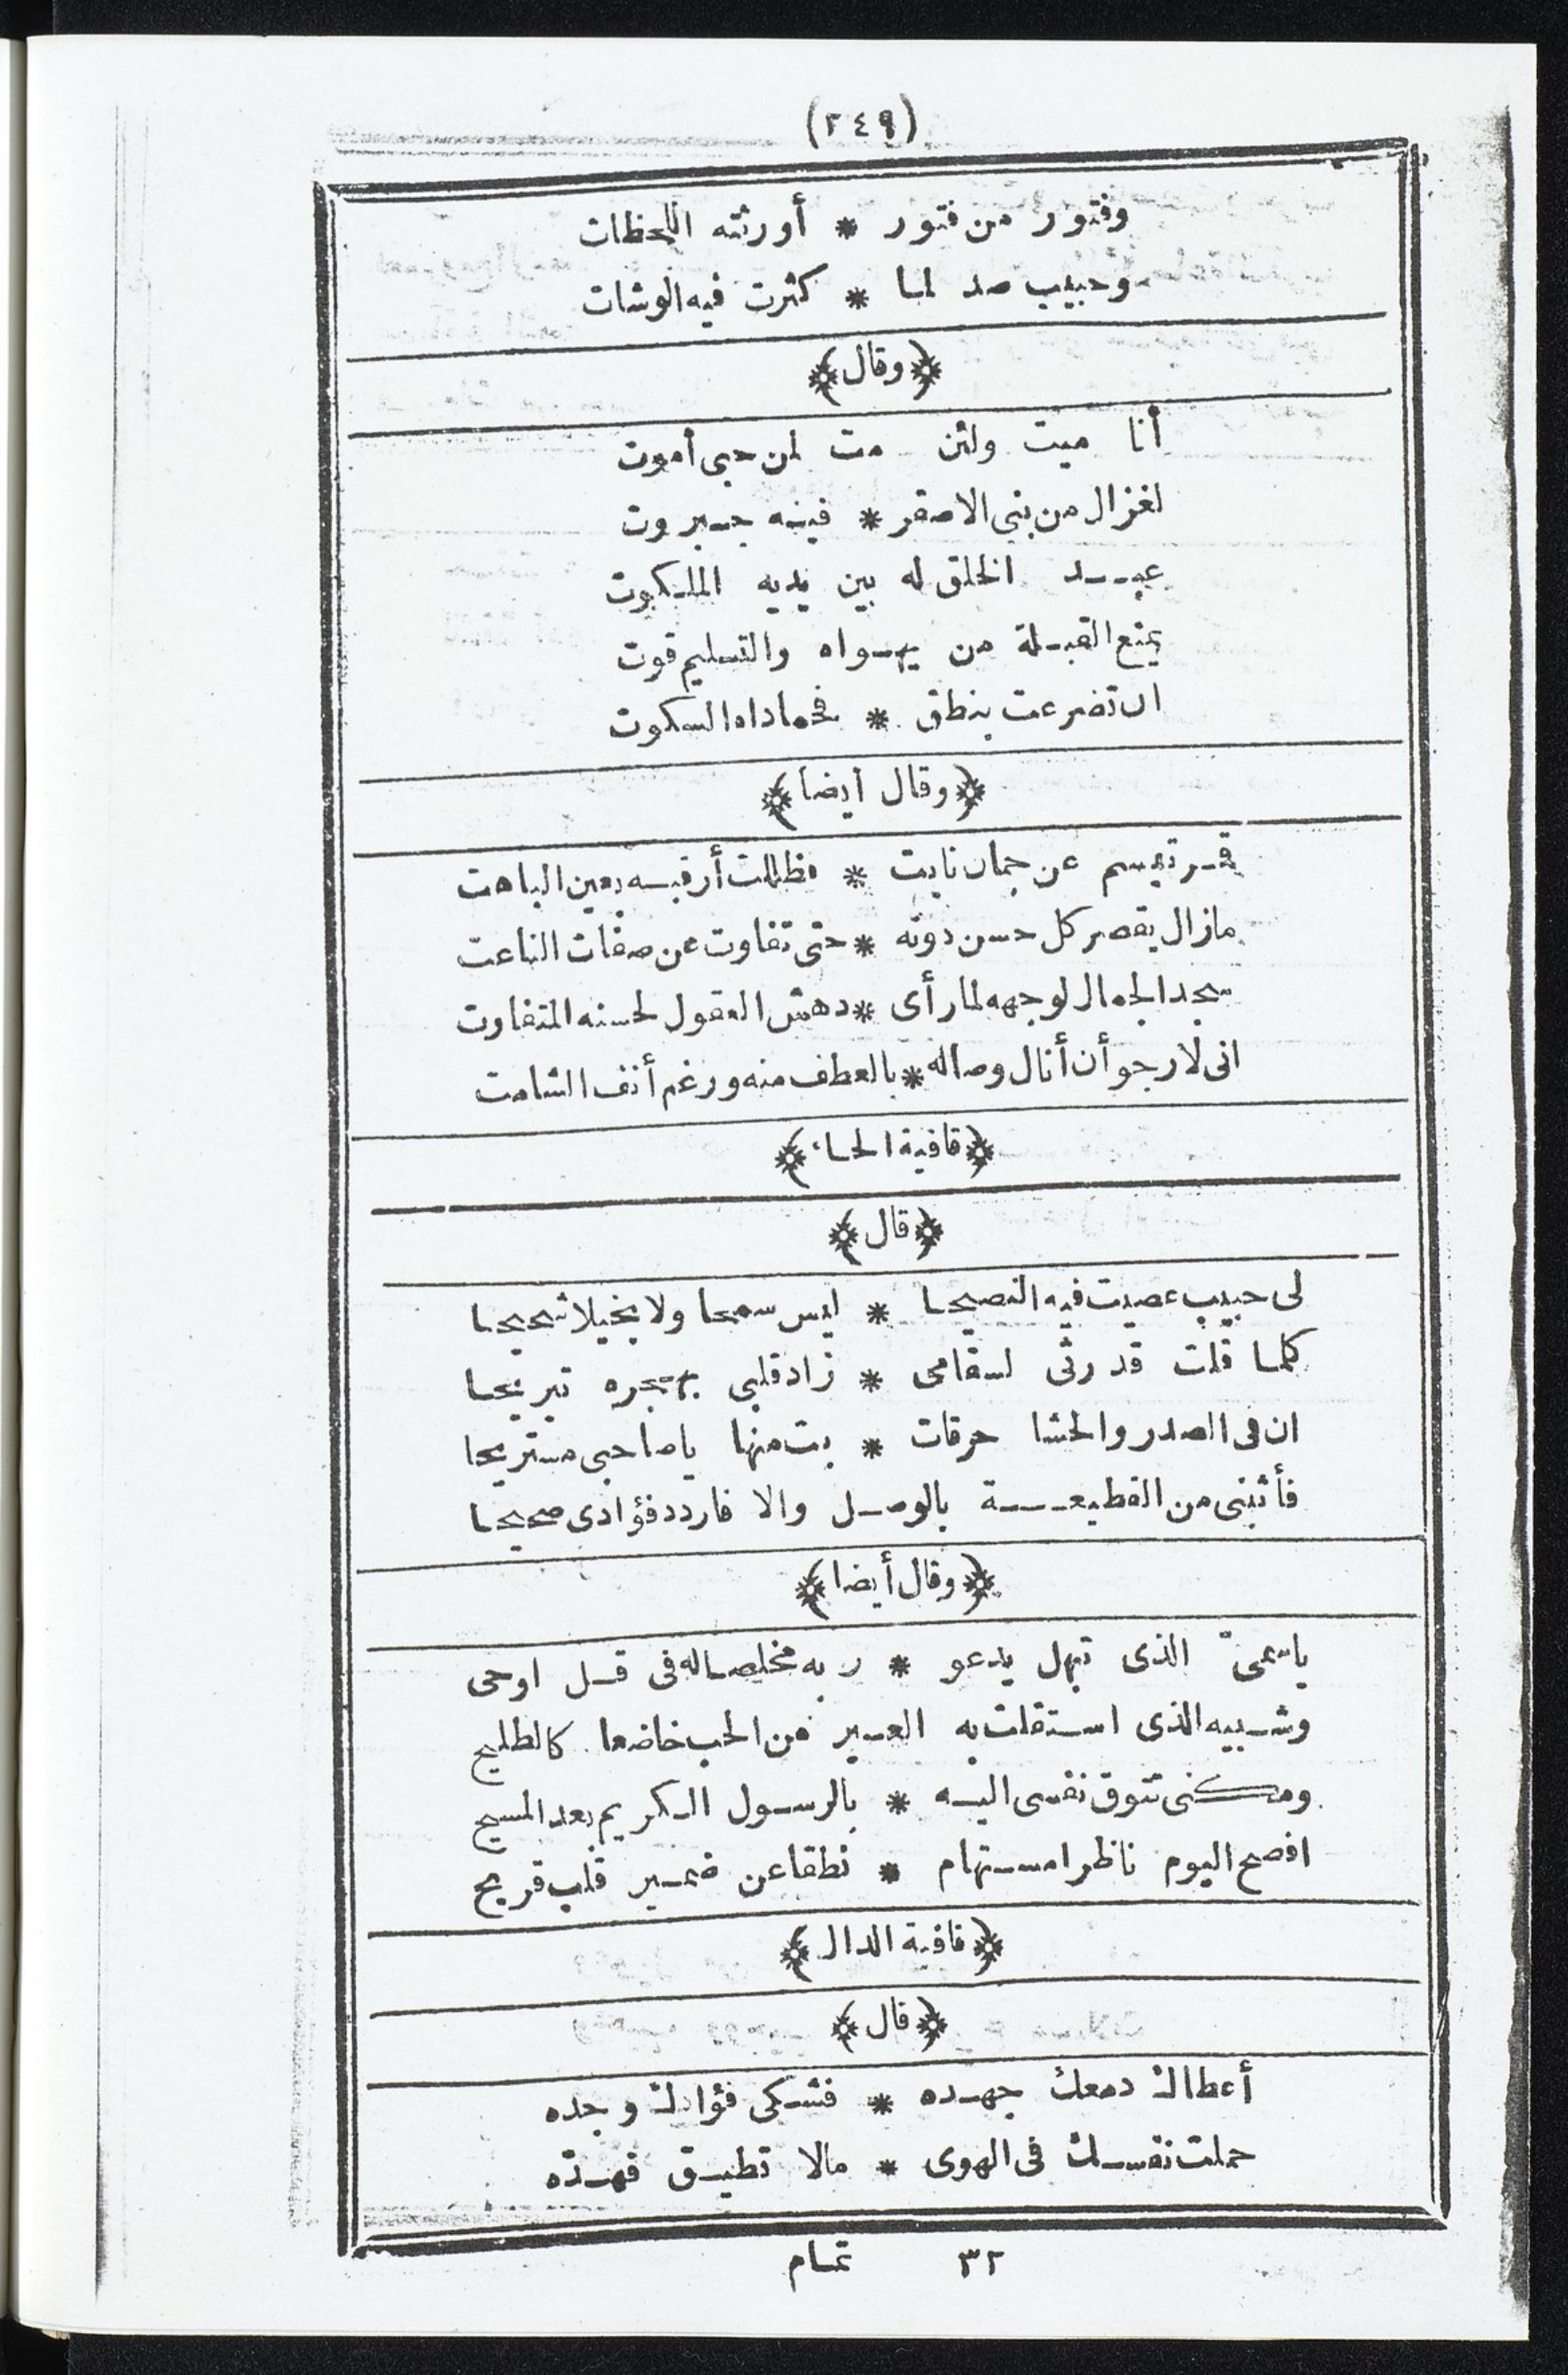 (٢٤٩)
وفتور من فتور * أورثته اللحظات
وحبيب صد لما * كثرت فيه الوشات
﴿وقال﴾
أنا ميت ولئن مت لمن حبى أموت
لغزال من بنى الاصفر * فيه جبروت
عبد الخلق له بين يديه الملكوت
يمنع القبلة من يهواه والتسليم قوت
ان تضرعت بنطق * فحماداه السكوت
﴿وقال أيضا﴾
قمر تبسم عن جمان نابت * فظللت أرقبه بعين الباهت
مازال يقصر كل حسن دونه * حتى تفاوت عن صفات الناعت
سجد الجمال لوجهه لما رأى * دهش العقول لحسنه المتفاوت
انى لأرجو أن أنال وصاله * بالعطف منه ورغم أنف الشامت
﴿قافية الحاء﴾
﴿قال﴾
لى حبيب عصيت فيه النصيحا * ليس سمحا ولا بخيلا شحيحا
كلما قلت قد رثى لسقامى * زاد قلبى بهجره تبريحا
ان فى الصدر والحشا حرقات * بت منها ياصاحبى مستريحا
فأثبنى من القطيعة بالوصل والا فاردد فؤادى صحيحا
﴿وقال أيضا﴾
ياسمىّ الذى تبهل يدعو * ربه مخلصا له فى قل اوحى
وشبيه الذى استقلت به العير من الحب خاضعا كالطليح
ومكنى تتوق نفسى اليه * بالرسول الكريم بعد المسيح
افصح اليوم ناظرا مستهام * نطقا عن ضمير قلب قريح
﴿قافية الدال﴾
﴿قال﴾
أعطاك دمعك جهده * فشكى فؤادك وجده
حملت نفسك فى الهوى * مالا تطيق فهدّه
٣٢ تمام